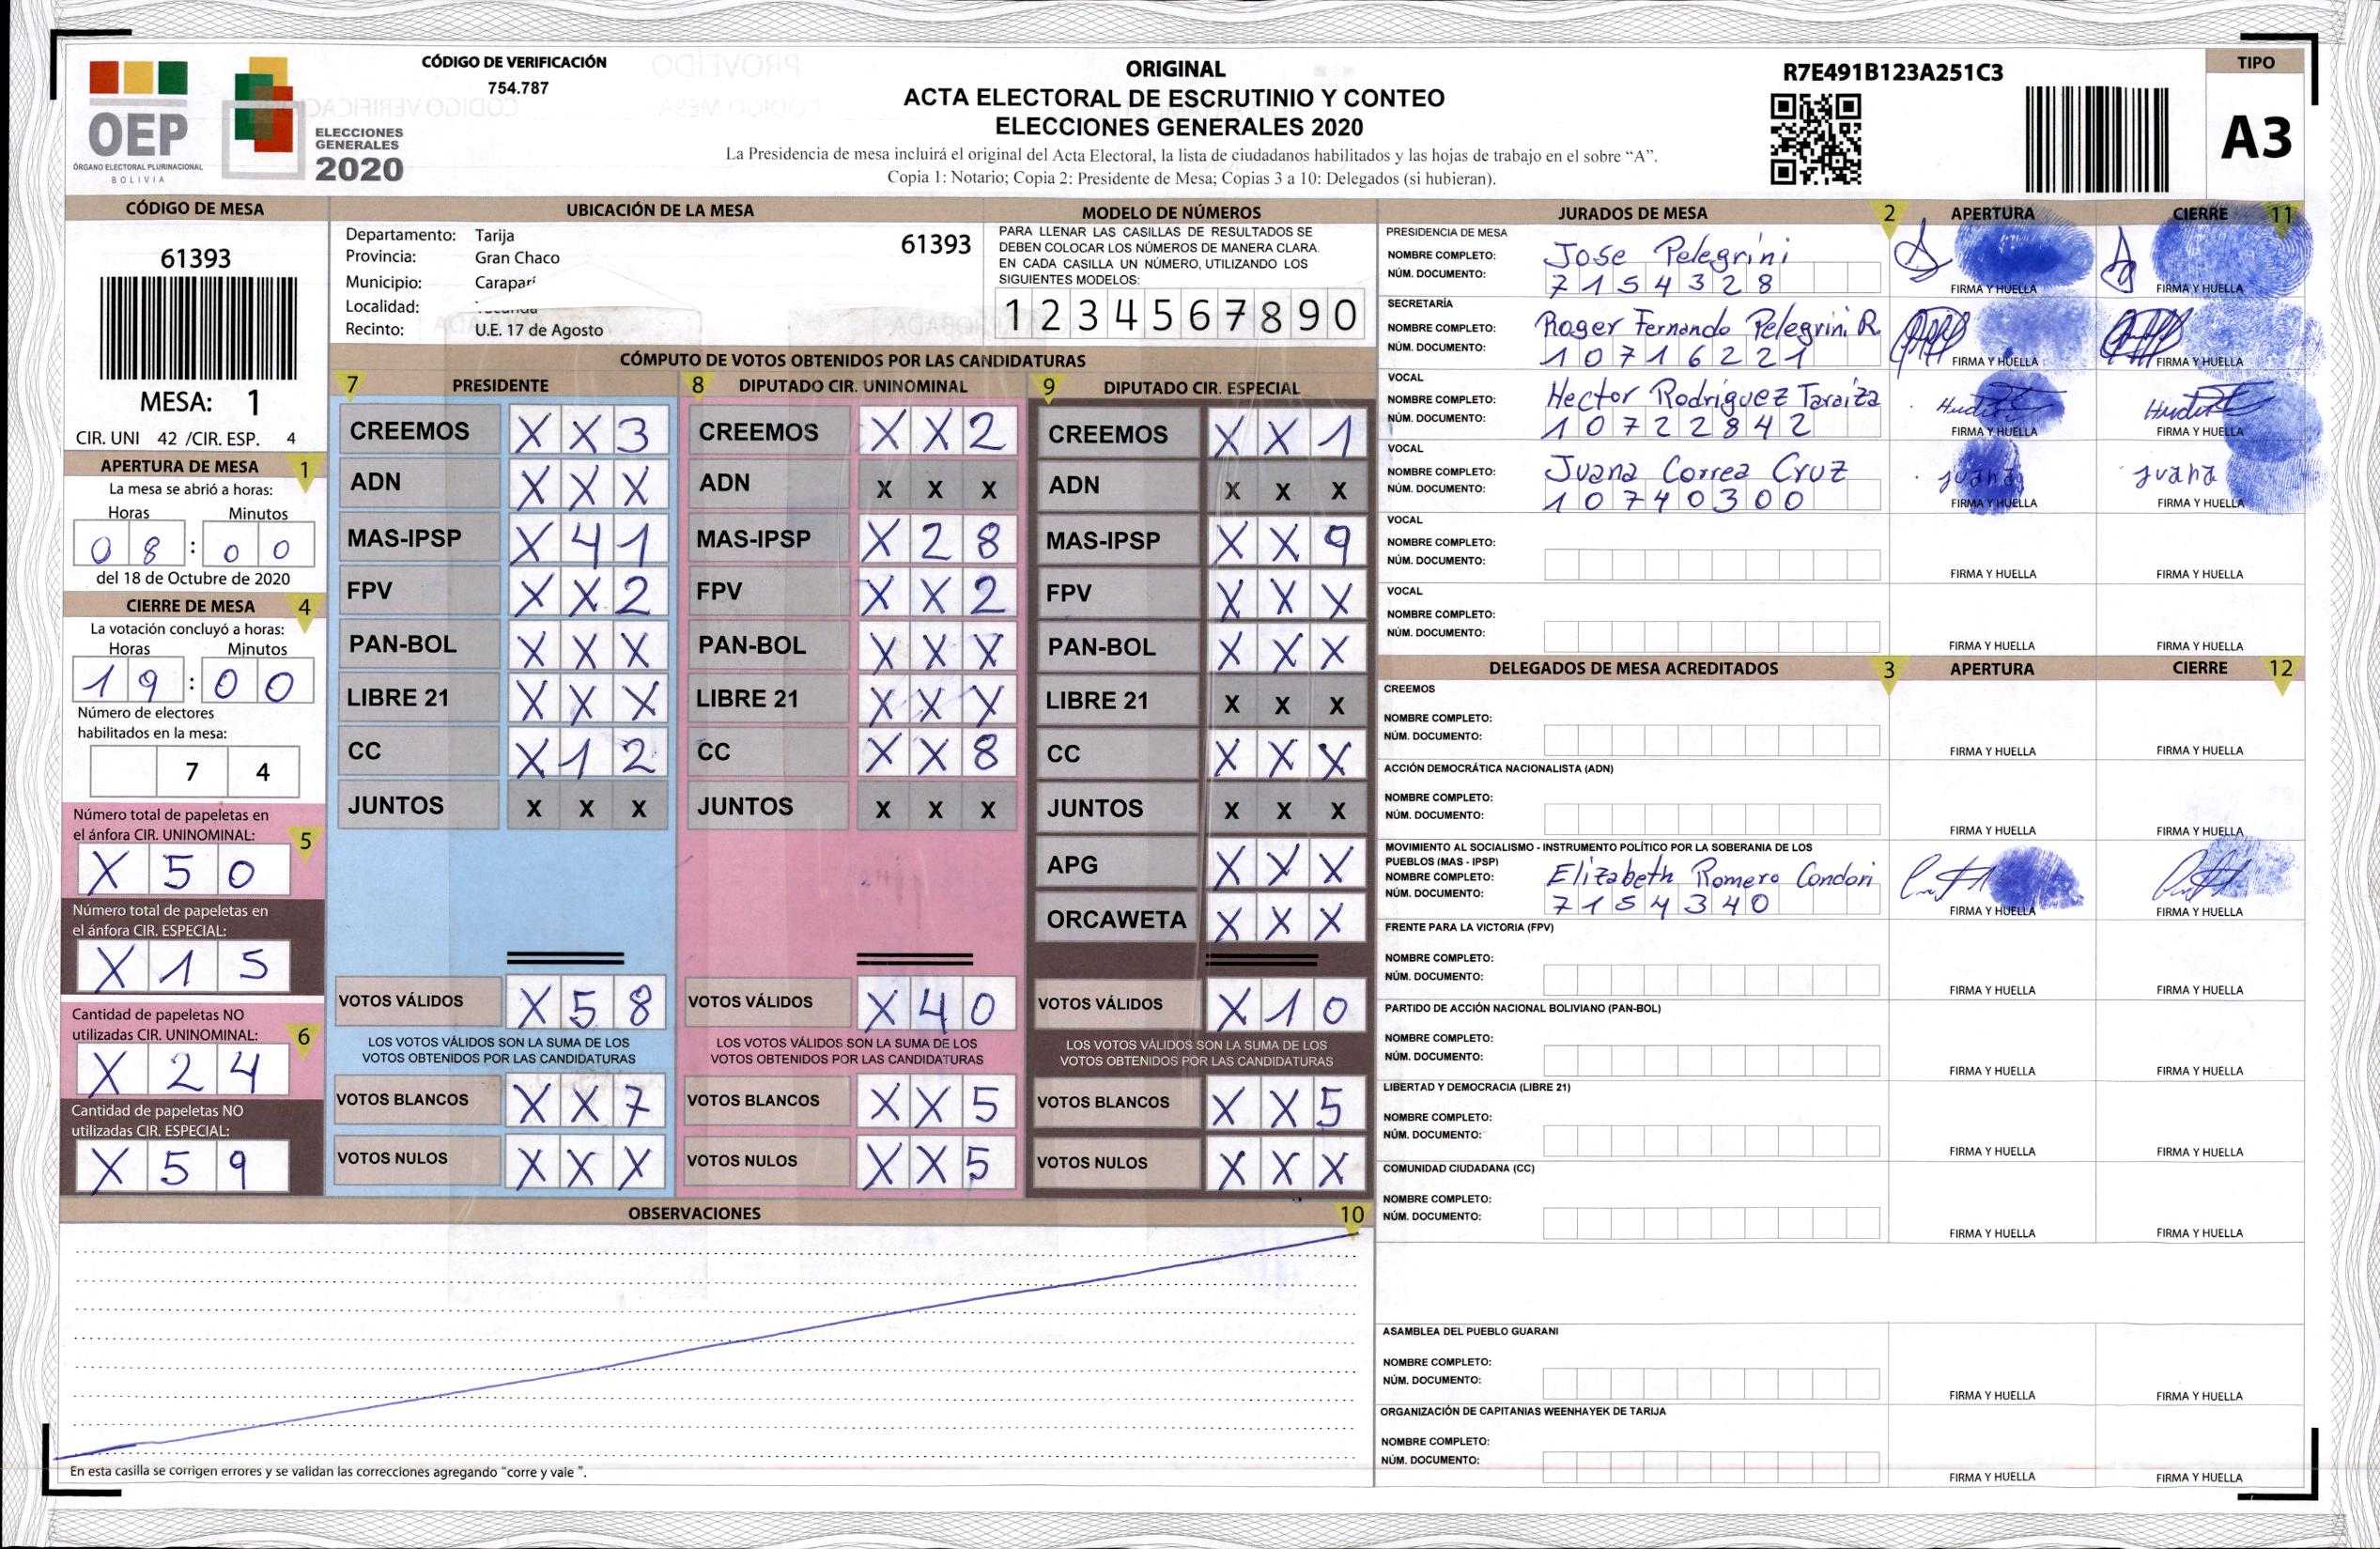 OEP
ÓRGANO ELECTORAL PLURINACIONAL
BOLIVIA
ELECCIONES
GENERALES
2020
CÓDIGO DE VERIFICACIÓN
754.787
ORIGINAL
ACTA ELECTORAL DE ESCRUTINIO Y CONTEO
ELECCIONES GENERALES 2020
La Presidencia de mesa incluirá el original del Acta Electoral, la lista de ciudadanos habilitados y las hojas de trabajo en el sobre “A”.
Copia 1: Notario; Copia 2: Presidente de Mesa; Copias 3 a 10: Delegados (si hubieran).
R7E491B123A251C3
TIPO
A3
CÓDIGO DE MESA
61393
MESA: 1
CIR. UNI 42 /CIR. ESP. 4
APERTURA DE MESA 1
La mesa se abrió a horas:
Horas Minutos
0 8 : 0 0
del 18 de Octubre de 2020
CIERRE DE MESA 4
La votación concluyó a horas:
Horas Minutos
1 9 : 0 0
Número de electores
habilitados en la mesa:
7 4
Número total de papeletas en
el ánfora CIR. UNINOMINAL: 5
X 5 0
Número total de papeletas en
el ánfora CIR. ESPECIAL:
X 1 5
Cantidad de papeletas NO
utilizadas CIR. UNINOMINAL: 6
X 2 4
Cantidad de papeletas NO
utilizadas CIR. ESPECIAL:
X 5 9
UBICACIÓN DE LA MESA
Departamento: Tarija
61393
Provincia: Gran Chaco
Municipio: Caraparí
Localidad:
Recinto: U.E. 17 de Agosto
MODELO DE NÚMEROS
PARA LLENAR LAS CASILLAS DE RESULTADOS SE
DEBEN COLOCAR LOS NÚMEROS DE MANERA CLARA.
EN CADA CASILLA UN NÚMERO, UTILIZANDO LOS
SIGUIENTES MODELOS:
1 2 3 4 5 6 7 8 9 0
CÓMPUTO DE VOTOS OBTENIDOS POR LAS CANDIDATURAS
7 PRESIDENTE
CREEMOS X X 3
ADN X X X
MAS-IPSP X 4 1
FPV X X 2
PAN-BOL X X X
LIBRE 21 X X X
CC X 1 2
JUNTOS X X X
VOTOS VÁLIDOS X 5 8
LOS VOTOS VÁLIDOS SON LA SUMA DE LOS
VOTOS OBTENIDOS POR LAS CANDIDATURAS
VOTOS BLANCOS X X 7
VOTOS NULOS X X X
8 DIPUTADO CIR. UNINOMINAL
CREEMOS X X 2
ADN X X X
MAS-IPSP X 2 8
FPV X X 2
PAN-BOL X X X
LIBRE 21 X X X
CC X X 8
JUNTOS X X X
VOTOS VÁLIDOS X 4 0
LOS VOTOS VÁLIDOS SON LA SUMA DE LOS
VOTOS OBTENIDOS POR LAS CANDIDATURAS
VOTOS BLANCOS X X 5
VOTOS NULOS X X 5
9 DIPUTADO CIR. ESPECIAL
CREEMOS X X 1
ADN X X X
MAS-IPSP X X 9
FPV X X X
PAN-BOL X X X
LIBRE 21 X X X
CC X X X
JUNTOS X X X
APG X X X
ORCAWETA X X X
VOTOS VÁLIDOS X 1 0
LOS VOTOS VÁLIDOS SON LA SUMA DE LOS
VOTOS OBTENIDOS POR LAS CANDIDATURAS
VOTOS BLANCOS X X 5
VOTOS NULOS X X X
OBSERVACIONES 10
En esta casilla se corrigen errores y se validan las correcciones agregando "corre y vale ".
JURADOS DE MESA 2 APERTURA CIERRE 11
PRESIDENCIA DE MESA
NOMBRE COMPLETO: Jose Pelegrini
NÚM. DOCUMENTO: 7154328
FIRMA Y HUELLA FIRMA Y HUELLA
SECRETARÍA
NOMBRE COMPLETO: Roger Fernando Pelegrini R.
NÚM. DOCUMENTO: 10716221
FIRMA Y HUELLA FIRMA Y HUELLA
VOCAL
NOMBRE COMPLETO: Hector Rodriguez Taraiza
NÚM. DOCUMENTO: 10722842
FIRMA Y HUELLA FIRMA Y HUELLA
VOCAL
NOMBRE COMPLETO: Juana Correa Cruz
NÚM. DOCUMENTO: 10740300
juana juana
FIRMA Y HUELLA FIRMA Y HUELLA
VOCAL
NOMBRE COMPLETO:
NÚM. DOCUMENTO:
FIRMA Y HUELLA FIRMA Y HUELLA
VOCAL
NOMBRE COMPLETO:
NÚM. DOCUMENTO:
FIRMA Y HUELLA FIRMA Y HUELLA
DELEGADOS DE MESA ACREDITADOS 3 APERTURA CIERRE 12
CREEMOS
NOMBRE COMPLETO:
NÚM. DOCUMENTO:
FIRMA Y HUELLA FIRMA Y HUELLA
ACCIÓN DEMOCRÁTICA NACIONALISTA (ADN)
NOMBRE COMPLETO:
NÚM. DOCUMENTO:
FIRMA Y HUELLA FIRMA Y HUELLA
MOVIMIENTO AL SOCIALISMO - INSTRUMENTO POLÍTICO POR LA SOBERANIA DE LOS
PUEBLOS (MAS - IPSP)
NOMBRE COMPLETO: Elizabeth Romero Condori
NÚM. DOCUMENTO: 7154340
FIRMA Y HUELLA FIRMA Y HUELLA
FRENTE PARA LA VICTORIA (FPV)
NOMBRE COMPLETO:
NÚM. DOCUMENTO:
FIRMA Y HUELLA FIRMA Y HUELLA
PARTIDO DE ACCIÓN NACIONAL BOLIVIANO (PAN-BOL)
NOMBRE COMPLETO:
NÚM. DOCUMENTO:
FIRMA Y HUELLA FIRMA Y HUELLA
LIBERTAD Y DEMOCRACIA (LIBRE 21)
NOMBRE COMPLETO:
NÚM. DOCUMENTO:
FIRMA Y HUELLA FIRMA Y HUELLA
COMUNIDAD CIUDADANA (CC)
NOMBRE COMPLETO:
NÚM. DOCUMENTO:
FIRMA Y HUELLA FIRMA Y HUELLA
ASAMBLEA DEL PUEBLO GUARANI
NOMBRE COMPLETO:
NÚM. DOCUMENTO:
FIRMA Y HUELLA FIRMA Y HUELLA
ORGANIZACIÓN DE CAPITANIAS WEENHAYEK DE TARIJA
NOMBRE COMPLETO:
NÚM. DOCUMENTO:
FIRMA Y HUELLA FIRMA Y HUELLA